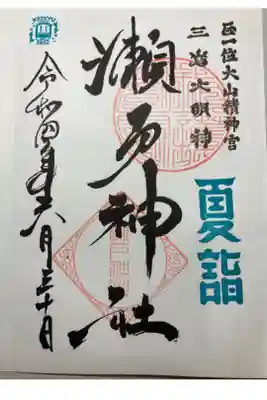 正一位大山積神宮
三島大明神
夏詣
瀬戸神社
令和四年六月三十日